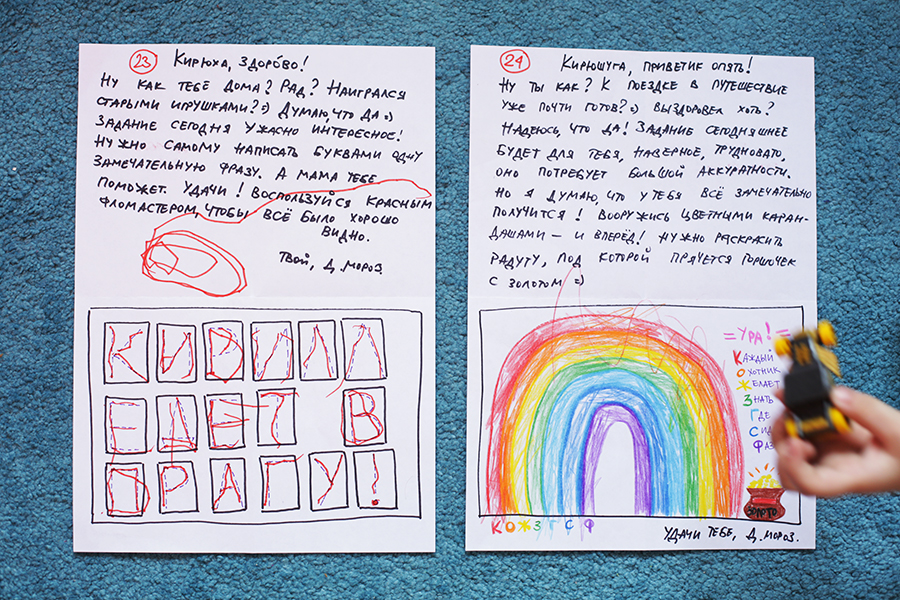 23 Кирюха, здорово!
Ну как тебе дома? Рад? Наигрался
старыми игрушками? =) Думаю, что да =)
Задание сегодня ужасно интересное!
Нужно самому написать буквами одну
замечательную фразу. А мама тебе
поможет. Удачи! Воспользуйся красным
фломастером, чтобы всё было хорошо
видно.
Твой, Д. Мороз
КИРИЛЛ
ЕДЕТ В
ПРАГУ!
24 Кирюшуга, приветик опять!
Ну ты как? К поездке в путешествие
уже почти готов? =) Выздоровел хоть?
Надеюсь, что да! Задание сегодняшнее
будет для тебя, наверное, трудновато,
оно потребует большой аккуратности.
Но я думаю, что у тебя всё замечательно
получится! Вооружись цветными каран-
дашами – и вперёд! Нужно раскрасить
радугу, под которой прячется горшочек
с золотом =)
=УРА!=
Каждый
Охотник
Желает
Знать
Где
Сид
Фаз
ЗОЛОТО
К О Ж З Г С Ф
Удачи тебе, Д. Мороз.